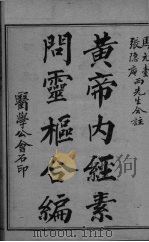 馬元臺
張隱庵
兩先生合註
黃帝內經素
問靈樞合編
醫學公會石印